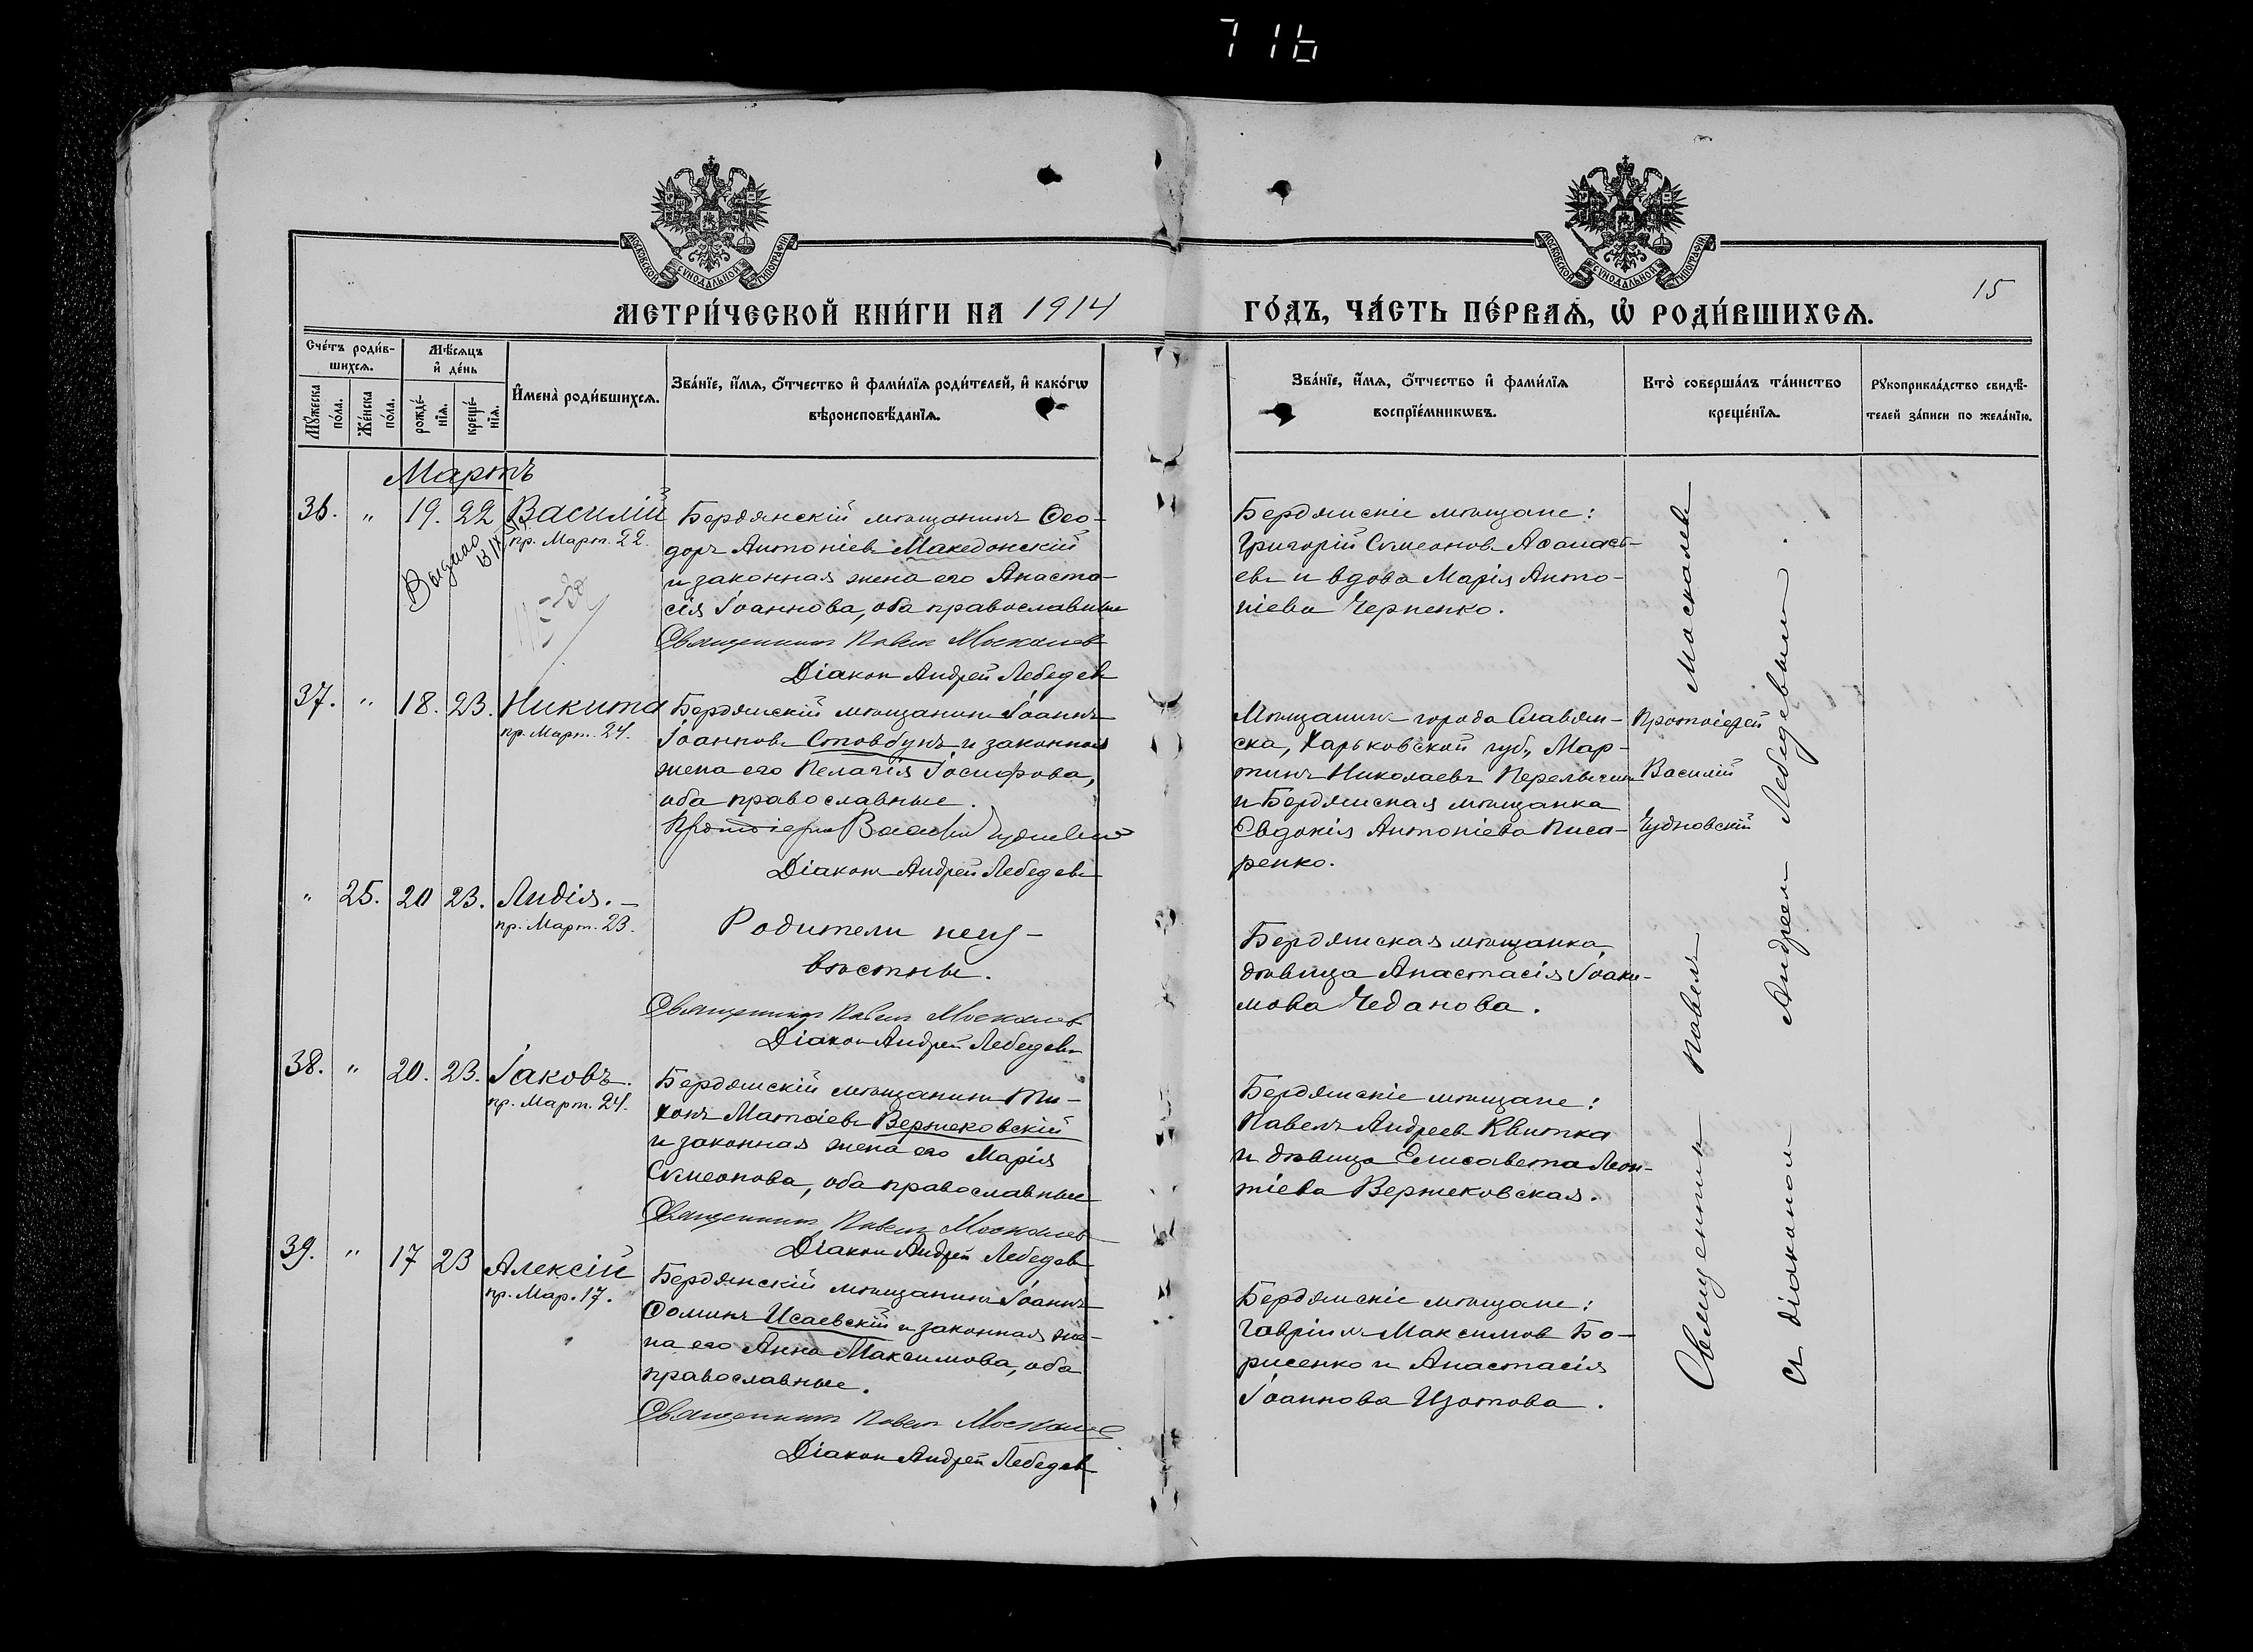 716
МОСКОВСКОЙ СѴНОДАЛЬНОЙ ТИПОГРАФІИ
МОСКОВСКОЙ СѴНОДАЛЬНОЙ ТИПОГРАФІИ
МЕТРИ́ЧЕСКОЙ КНИ́ГИ НА 1914
ГО́ДЪ, ЧА́СТЬ ПЕ́РВАѦ, Ѡ҆ РОДИ́ВШИХСѦ.
15
Сче́тъ роди́в-
шихсѧ.
Мꙋ́жеска
по́ла.
Же́нска
по́ла.
Мѣ́сѧцъ
и҆ де́нь
рожде́-
нїѧ.
креще́-
нїѧ.
И҆мена̀ роди́вшихсѧ.
Зва́нїе, и҆́мѧ, ѻ҆́тчество и҆ фами́лїѧ роди́телей, и҆ како́гѡ
вѣроисповѣ́данїѧ.
Зва́нїе, и҆́мѧ, ѻ҆́тчество и҆ фами́лїѧ
воспрїе́мникѡвъ.
Кто̀ соверша́лъ та́инство
креще́нїѧ.
Рꙋкоприкла́дство свидѣ́-
телей за́писи по жела́нїю.
Мартъ
36. " 19. 22 Василій
пр. Март. 22.
Выдано
Бердянскій мѣщанинъ Ѳео-
доръ Антоніевъ Македонскій
и законная жена его Анаста-
сія Іоаннова, оба православные
Священникъ Павелъ Москалевъ
Діаконъ Андрей Лебедевъ
Бердянскіе мѣщане:
Григорій Сѵмеоновъ Аѳанась-
евъ и вдова Марія Анто-
ніева Черненко.
37. " 18. 23. Никита
пр. Март. 24.
Бердянскій мѣщанинъ Іоаннъ
Іоанновъ Стовбунъ и законная
жена его Пелагія Іосифова,
оба православные.
Протоіерей Василий Чудновский
Діаконъ Андрей Лебедевъ
Мѣщанинъ города Славян-
ска, Харьковской губ., Мар-
тинъ Николаевъ
и Бердянская мѣщанка
Евдокія Антоніева Писа-
ренко.
Протоіерей
Василій
Чудновскій
" 25. 20 23. Лидія. -
пр. Март. 23.
Родители неиз-
вѣстны.
Священникъ Павелъ Москалевъ
Діаконъ Андрей Лебедевъ
Бердянская мѣщанка
дѣвица Анастасія Іоаки-
мова Чеданова.
38. " 20. 23. Іаковъ.
пр. Март. 24.
Бердянскій мѣщанинъ Ти-
хонъ Матѳіевъ Вержековскій
и законная жена его Марія
Сѵмеонова, оба православные
Священникъ Павелъ Москалевъ
Діаконъ Андрей Лебедевъ
Бердянскіе мѣщане:
Павелъ Андреевъ Квитка
и дѣвица Елисавета Леон-
тіева Вержековская.
39. " 17 23 Алексій
пр. Мар. 17.
Бердянскій мѣщанинъ Іоаннъ
Ѳоминъ Исаевскій и законная же-
на его Анна Максимова, оба
православные.
Священникъ Павелъ Москалевъ
Діаконъ Андрей Лебедевъ
Бердянскіе мѣщане:
Гавріилъ Максимовъ Бо-
рисенко и Анастасія
Іоаннова Изотова.
Священникъ Павелъ Москалевъ
съ діакономъ Андреемъ Лебедевымъ.